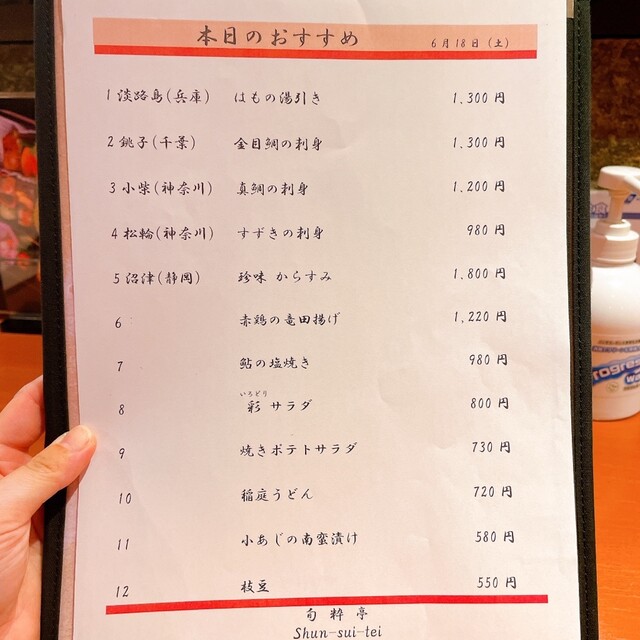 本日のおすすめ 6月18日(土)
1 淡路島(兵庫) はもの湯引き 1,300円
2 銚子(千葉) 金目鯛の刺身 1,300円
3 小柴(神奈川) 真鯛の刺身 1,200円
4 松輪(神奈川) すずきの刺身 980円
5 沼津(静岡) 珍味 からすみ 1,800円
6 赤鶏の竜田揚げ 1,220円
7 鮎の塩焼き 980円
いろどり
8 彩 サラダ 800円
9 焼きポテトサラダ 730円
10 稲庭うどん 720円
11 小あじの南蛮漬け 580円
12 枝豆 550円
旬粋亭
Shun-sui-tei